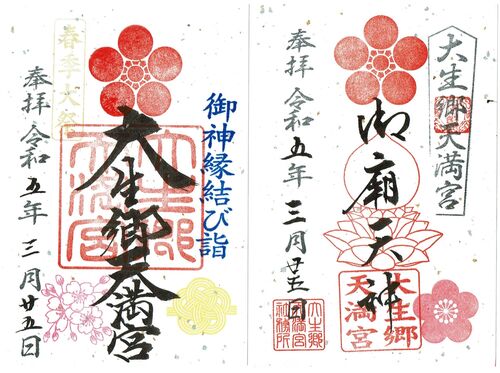 御神縁結び詣
春季大祭
大生郷天満宮
大生郷天満宮
奉拝 令和五年 三月廿五日
大生郷天満宮
御廟天神
大生郷天満宮
大生郷天満宮社務所
奉拝 令和五年 三月廿五日